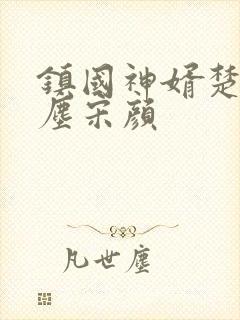 鎮國神婿楚
塵宋顔
凡世塵